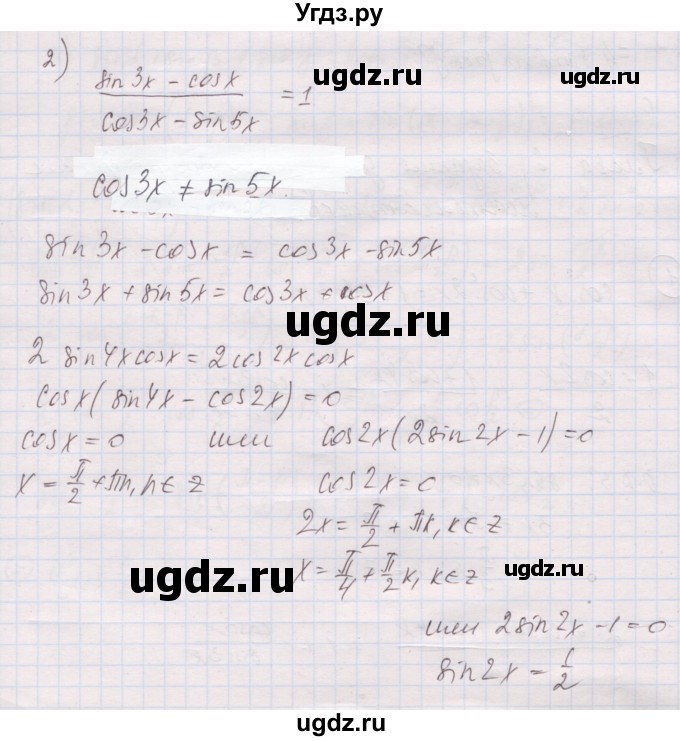 Угдз.ру
2)
sin 3x - cos x / cos 3x - sin 5x = 1
ugdz.ru ugdz.ru
cos 3x ≠ sin 5x.
sin 3x - cos x = cos 3x - sin 5x
sin 3x + sin 5x = cos 3x + cos x
ugdz.ru
2 sin 4x cos x = 2 cos 2x cos x
cos x (sin 4x - cos 2x) = 0
cos x = 0 или cos 2x (2 sin 2x - 1) = 0
x = π/2 + πn, n ∈ Z cos 2x = 0
2x = π/2 + πk, k ∈ Z
ugdz.ru ugdz.ru
x = π/4 + π/2 k, k ∈ Z
или 2 sin 2x - 1 = 0
ugdz.ru
sin 2x = 1/2
ugdz.ru